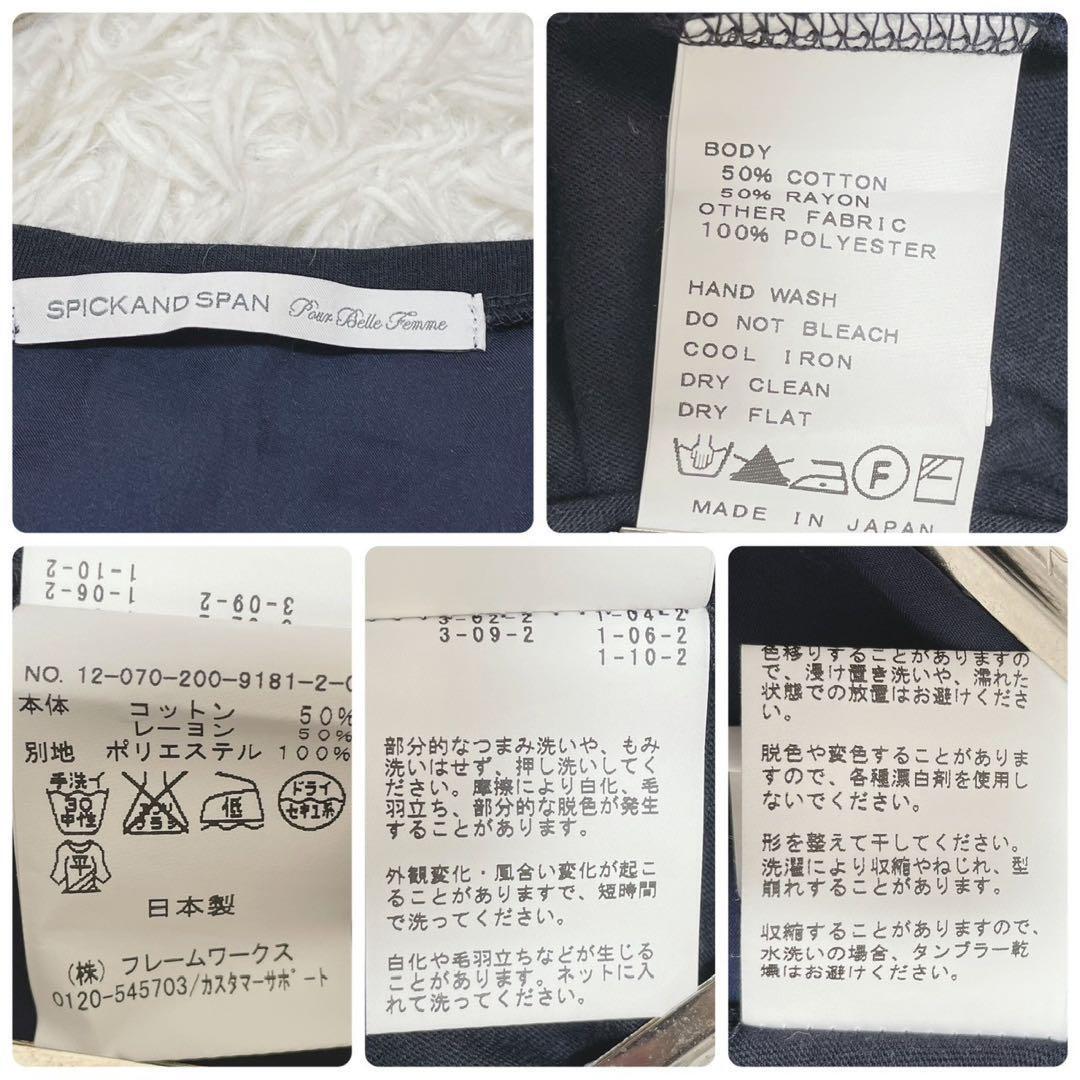 SPICKAND SPAN Pour Belle Femme
BODY
50% COTTON
50% RAYON
OTHER FABRIC
100% POLYESTER
HAND WASH
DO NOT BLEACH
COOL IRON
DRY CLEAN
DRY FLAT
F
MADE IN JAPAN
1-10-2
1-06-2
3-09-2
NO. 12-070-200-9181-2-0
本体 コットン 50%
レーヨン 50%
別地 ポリエステル 100%
手洗イ
30
中性
エンソ
サラシ
低
ドライ
セキユ系
平
日本製
(株) フレームワークス
0120-545703/カスタマーサポート
3-02-2 1-04-2
3-09-2 1-06-2
1-10-2
部分的なつまみ洗いや、もみ
洗いはせず、押し洗いしてく
ださい。摩擦により白化、毛
羽立ち、部分的な脱色が発生
することがあります。
外観変化・風合い変化が起こ
ることがありますで、短時間
で洗ってください。
白化や毛羽立ちなどが生じる
ことがあります。ネットに入
れて洗ってください。
色移りすることがありますの
で、浸け置き洗いや、濡れた
状態での放置はお避けくださ
い。
脱色や変色することがありま
すので、各種漂白剤を使用し
ないでください。
形を整えて干してください。
洗濯により収縮やねじれ、型
崩れすることがあります。
収縮することがありますので、
水洗いの場合、タンブラー乾
燥はお避けください。